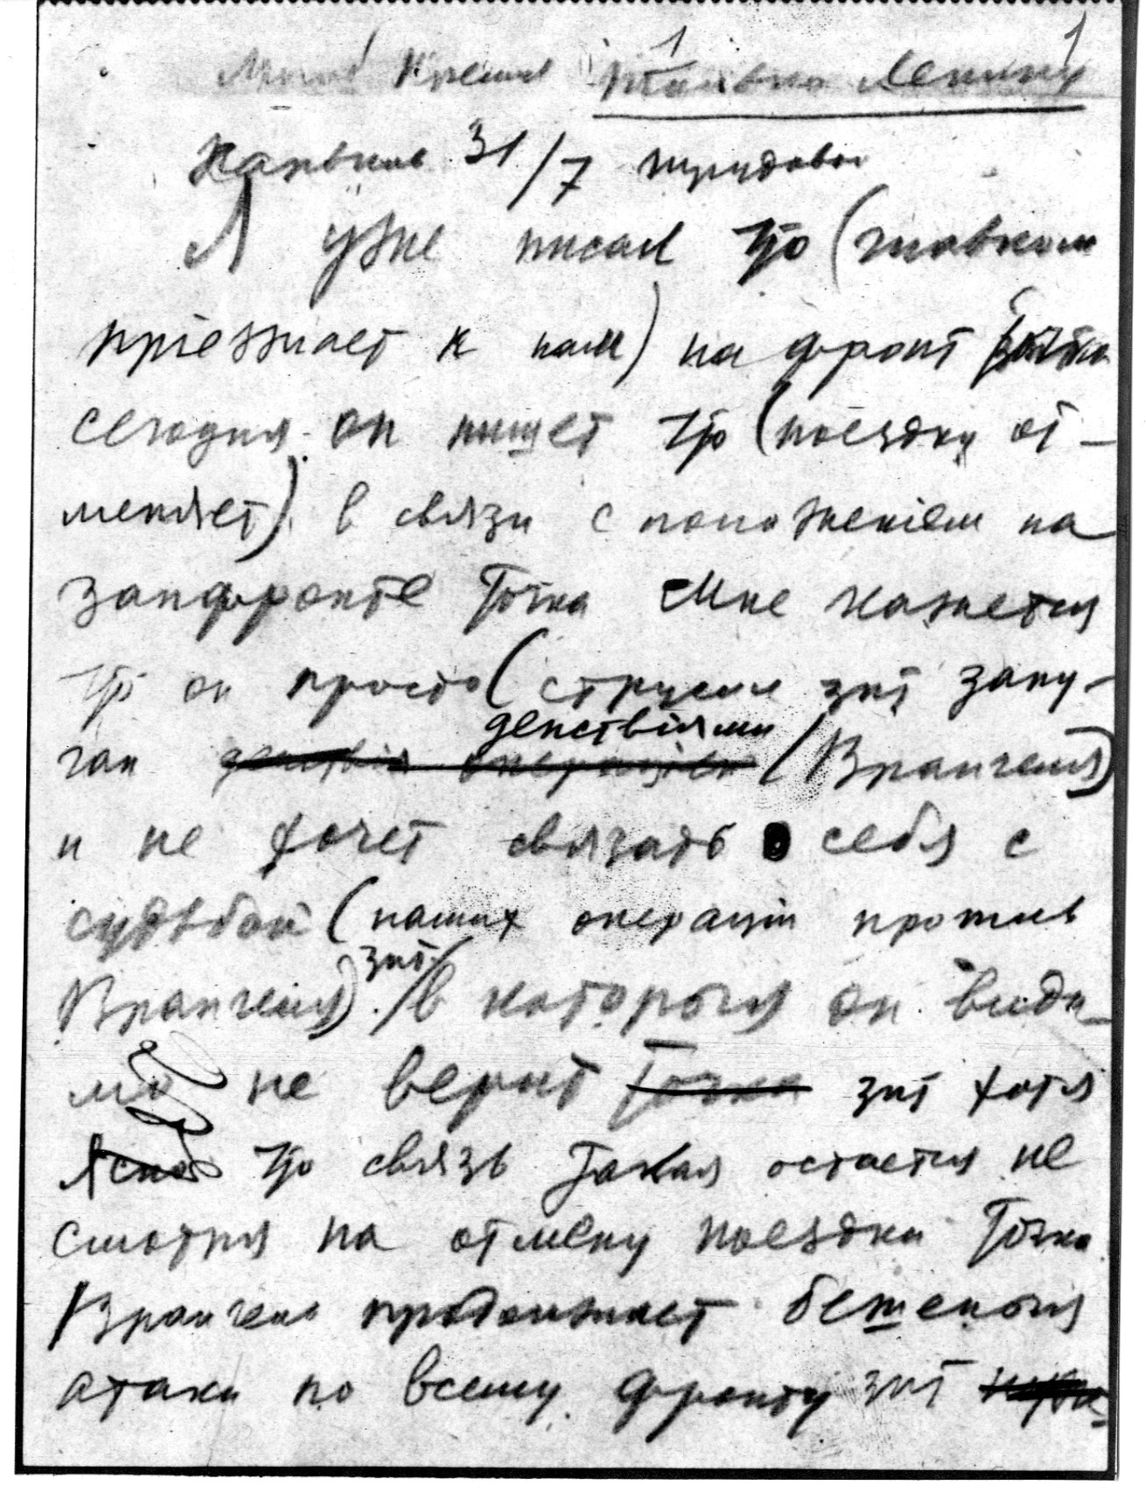 1 1
Кремль Ленину
Харьков 31/7
Я уже писал что (главком
приезжает к нам) на фронт точка
сегодня он пишет что (поездку от-
меняет) в связи с положением на
запфронте точка Мне кажется
что он просто (струсил зпт запу-
действиями
ган действия операцией (Врангеля)
и не хочет связать себя с
судьбой (наших операций против
зпт
Врангеля) (в которыя он види-
мо не верит точка зпт хотя
ясно что связь такая остается не
смотря на отмену поездки точка
Врангель продолжает бешеныя
атаки по всему фронту зпт